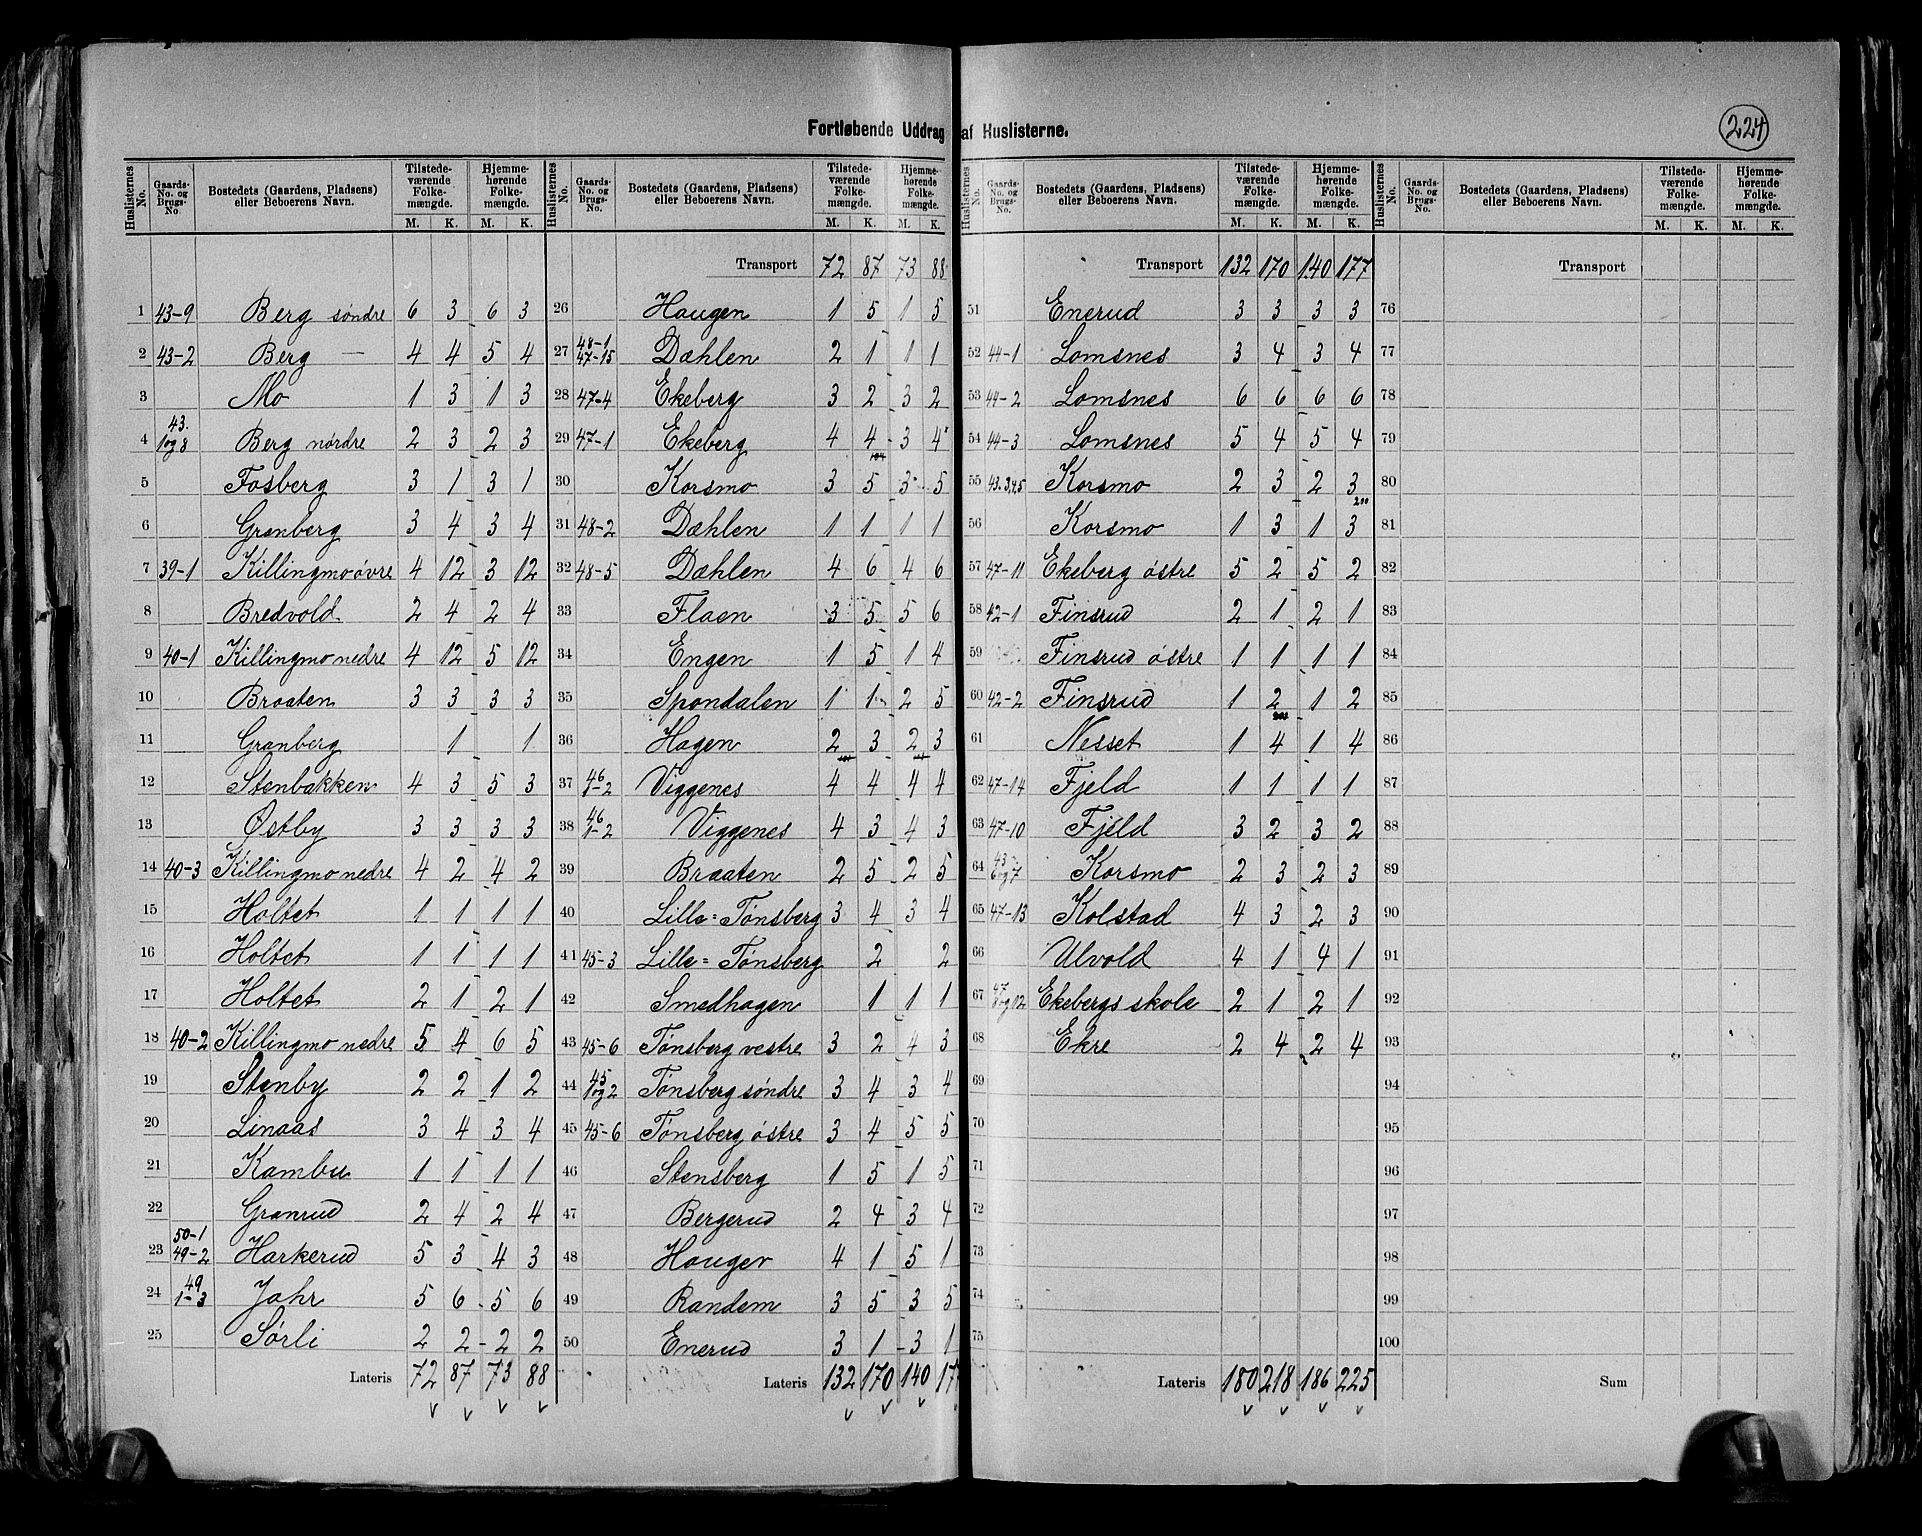 Fortløbende Uddrag af Huslisterne.
224
Huslisternes No. | Gaards-No. og Brugs-No. | Bostedets (Gaardens, Pladsens) eller Beboerens Navn. | Tilstedeværende Folkemængde. M. K. | Hjemmehørende Folkemængde. M. K.
1 43-9 Berg søndre 6 3 6 3
2 43-2 Berg — 4 4 5 4
3 Mo 1 3 1 3
4 43. 1og8 Berg nørdre 2 3 2 3
5 Fosberg 3 1 3 1
6 Granberg 3 4 3 4
7 39-1 Killingmo øvre 4 12 3 12
8 Bredvold 2 4 2 4
9 40-1 Killingmo nedre 4 12 5 12
10 Braaten 3 3 3 3
11 Granberg 1 1
12 Stenbakken 4 3 5 3
13 Østby 3 3 3 3
14 40-3 Killingmo nedre 4 2 4 2
15 Holtet 1 1 1 1
16 Holtet 1 1 1 1
17 Holtet 2 1 2 1
18 40-2 Killingmo nedre 5 4 6 5
19 Stenby 2 2 1 2
20 Linaas 3 4 3 4
21 Kambu 1 1 1 1
22 Granrud 2 4 2 4
23 50-1 49-2 Harkerud 5 3 4 3
24 49 1-3 Jahr 5 6 5 6
25 Sørli 2 2 2 2
Lateris 72 87 73 88
Huslisternes No. | Gaards-No. og Brugs-No. | Bostedets (Gaardens, Pladsens) eller Beboerens Navn. | Tilstedeværende Folkemængde. M. K. | Hjemmehørende Folkemængde. M. K.
Transport 72 87 73 88
26 Haugen 1 5 1 5
27 48-1 47-15 Dæhlen 2 1 1 1
28 47-4 Ekeberg 3 2 3 2
29 47-1 Ekeberg 4 4 3 4
30 Korsmo 3 5 3 5
31 48-2 Dæhlen 1 1 1 1
32 48-5 Dæhlen 4 6 4 6
33 Flaen 3 5 5 6
34 Engen 1 5 1 4
35 Spondalen 1 1 2 5
36 Hagen 2 3 2 3
37 46 1-2 Viggenes 4 4 4 4
38 46 1-2 Viggenes 4 3 4 3
39 Braaten 2 5 2 5
40 Lille=Tønsberg 3 4 3 4
41 45-3 Lille=Tønsberg 2 2
42 Smedhagen 1 1 1
43 45-6 Tønsberg vestre 3 2 4 3
44 45 1og2 Tønsberg søndre 3 4 3 4
45 45-6 Tønsberg østre 3 4 5 5
46 Stensberg 1 5 1 5
47 Bergerud 2 4 3 4
48 Hauger 4 1 5 1
49 Randem 3 5 3 5
50 Enerud 3 1 3 1
Lateris 132 170 140 17
Huslisternes No. | Gaards-No. og Brugs-No. | Bostedets (Gaardens, Pladsens) eller Beboerens Navn. | Tilstedeværende Folkemængde. M. K. | Hjemmehørende Folkemængde. M. K.
Transport 132 170 140 177
51 Enerud 3 3 3 3
52 44-1 Lomsnes 3 4 3 4
53 44-2 Lomsnes 6 6 6 6
54 44-3 Lomsnes 5 4 5 4
55 43.3,4,5 Korsmo 2 3 2 3
56 Korsmo 1 3 1 3
57 47-11 Ekeberg østre 5 2 5 2
58 42-1 Finsrud 2 1 2 1
59 Finsrud østre 1 1 1 1
60 42-2 Finsrud 1 2 1 2
61 Nesset 1 4 1 4
62 47-14 Fjeld 1 1 1 1
63 47-10 Fjeld 3 2 3 2
64 43- 6og7 Korsmo 2 3 2 3
65 47-13 Kolstad 4 3 2 3
66 Ulvold 4 1 4 1
67 47 8og12 Ekebergs skole 2 1 2 1
68 Ekre 2 4 2 4
69
70
71
72
73
74
75
Lateris 180 218 186 225
Huslisternes No. | Gaards-No. og Brugs-No. | Bostedets (Gaardens, Pladsens) eller Beboerens Navn. | Tilstedeværende Folkemængde. M. K. | Hjemmehørende Folkemængde. M. K.
Transport
76
77
78
79
80
81
82
83
84
85
86
87
88
89
90
91
92
93
94
95
96
97
98
99
100
Sum